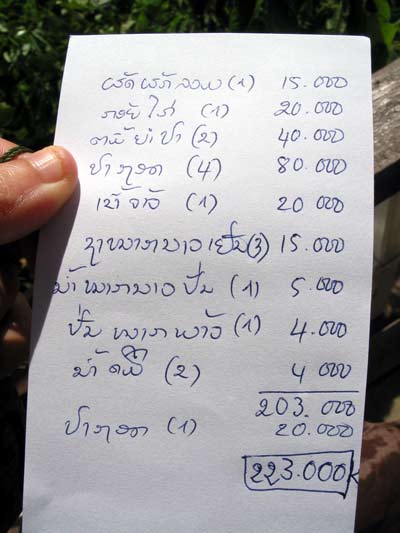 ຜັດຜັກລວມ (1) 15.000
(1) 20.000
ຕົ້ມຍຳປາ (2) 40.000
ປາທອດ (4) 80.000
(1) 20 000
ຊາໝາກນາວເຢັນ (3) 15.000
ນ້ຳໝາກນາວປັ່ນ (1) 5.000
ປັ່ນໝາກພ້າວ (1) 4.000
ນ້ຳດື່ມ (2) 4 000
203. 000
ປາທອດ (1) 20.000
223.000K